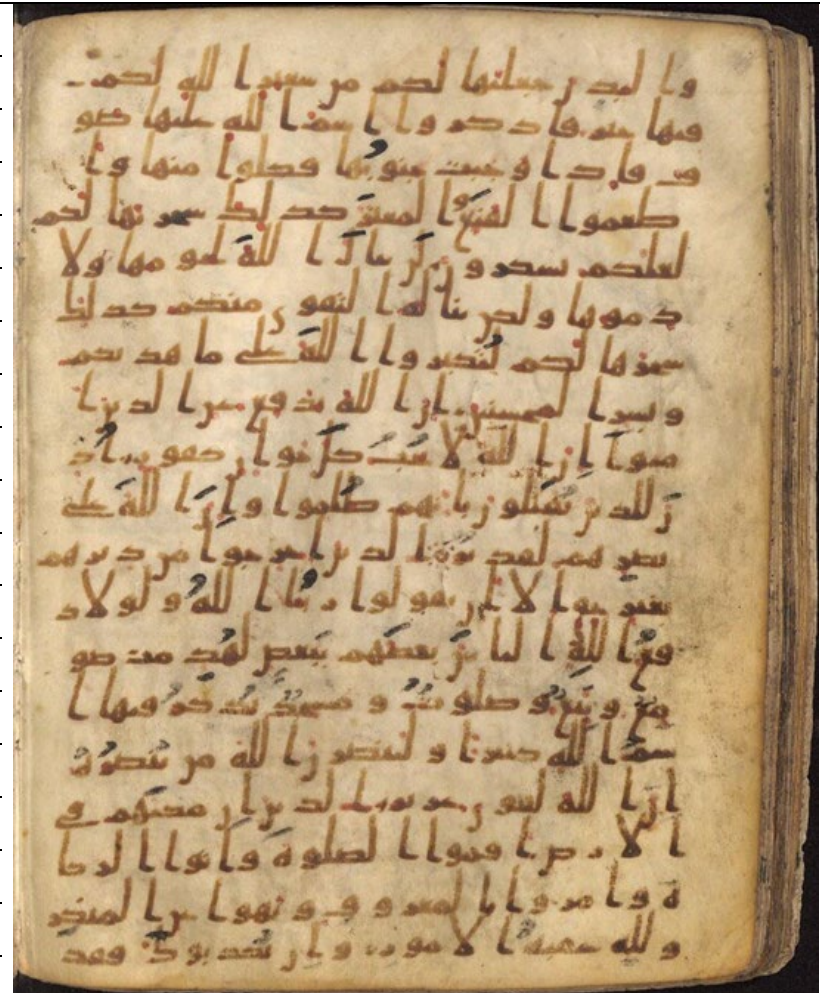 والبدن جعلنها لكم من شعير الله لكم
فيها خير فاذكروا اسم الله عليها صو
ف فاذا وجبت جنوبها فكلوا منها وا
طعموا القنع والمعتر كذلك سخرنها لكم
لعلكم تشكرون لن ينال الله لحومها ولا
دموها ولكن يناله التقوى منكم كذلك
سخرها لكم لتكبروا الله على ما هديكم
وبشر المحسنين ان الله يدفع عن الذين ا
منوا ان الله لا يحب كل خوان كفور اذ
ن للذين يقتلون بانهم ظلموا وان الله على
نصرهم لقدير الذين اخرجوا من ديرهم
بغير حق الا ان يقولوا ربنا الله ولولا د
فع الله الناس بعضهم ببعض لهدمت صو
مع وبيع وصلوت ومسجد يذكر فيها ا
سم الله كثيرا ولينصرن الله من ينصره
ان الله لقوى عزيز الذين ان مكنهم فى
الارض اقموا الصلوة واتوا الزكو
ة وامروا بالمعروف ونهوا عن المنكر
ولله عقبة الامور وان يكذبوك فقد